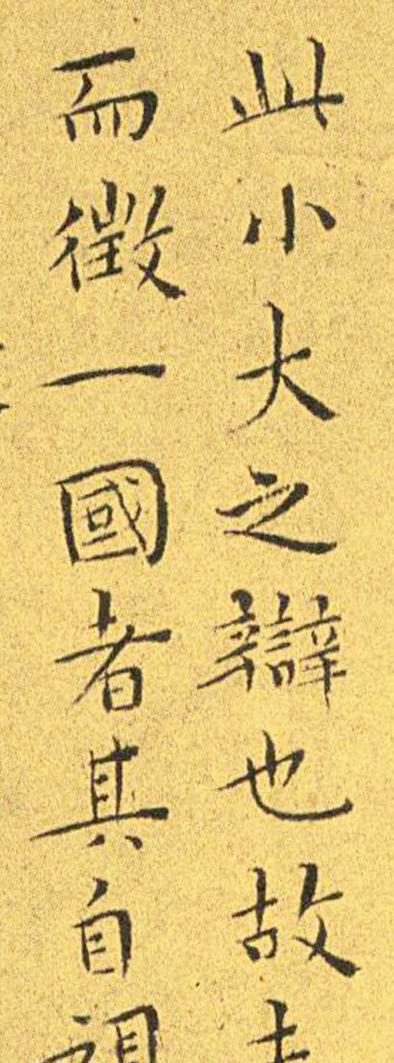 此小大之辯也故
而徵一國者其自